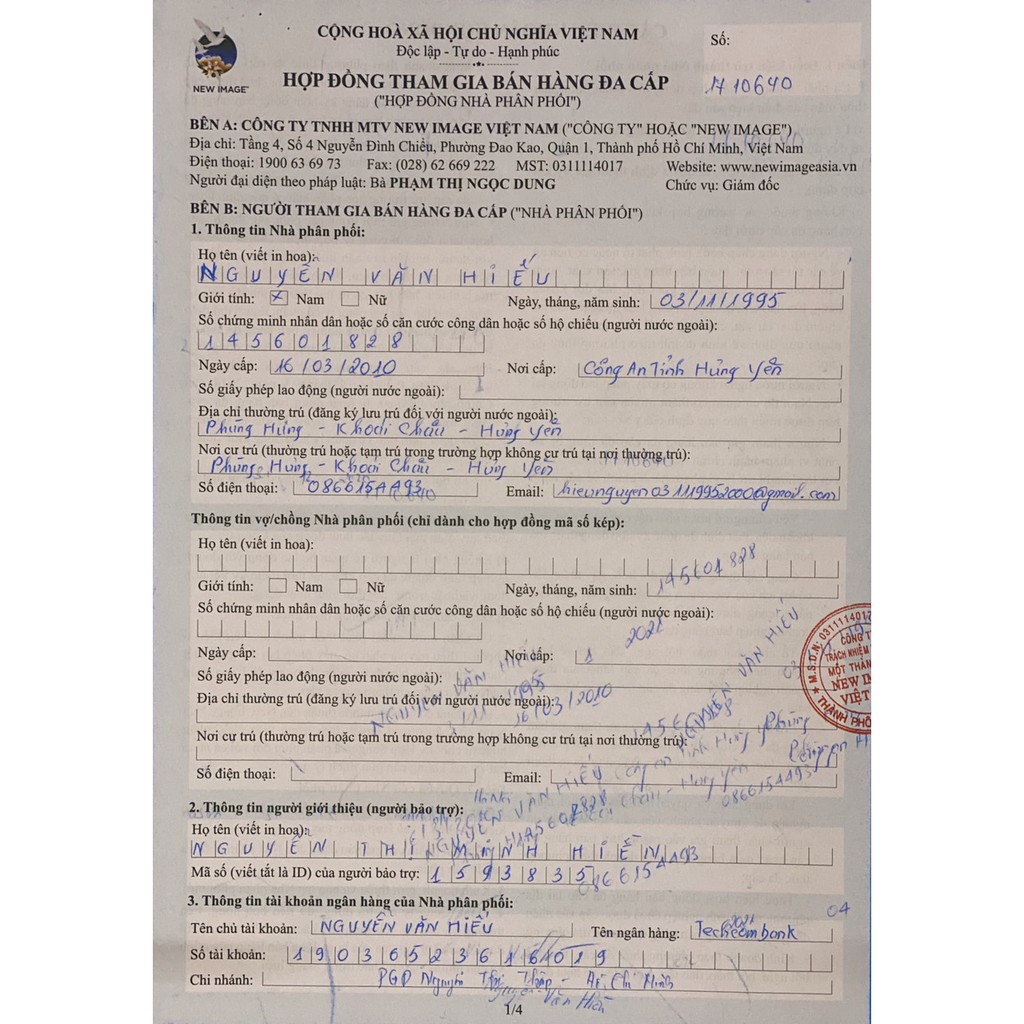 CỘNG HOÀ XÃ HỘI CHỦ NGHĨA VIỆT NAM
Độc lập - Tự do - Hạnh phúc
Số:
NEW IMAGE
HỢP ĐỒNG THAM GIA BÁN HÀNG ĐA CẤP
1710640
("HỢP ĐỒNG NHÀ PHÂN PHỐI")
BÊN A: CÔNG TY TNHH MTV NEW IMAGE VIỆT NAM ("CÔNG TY" HOẶC "NEW IMAGE")
Địa chỉ: Tầng 4, Số 4 Nguyễn Đình Chiểu, Phường Đao Kao, Quận 1, Thành phố Hồ Chí Minh, Việt Nam
Điện thoại: 1900 63 69 73 Fax: (028) 62 669 222 MST: 0311114017 Website: www.newimageasia.vn
Người đại diện theo pháp luật: Bà PHẠM THỊ NGỌC DUNG Chức vụ: Giám đốc
BÊN B: NGƯỜI THAM GIA BÁN HÀNG ĐA CẤP ("NHÀ PHÂN PHỐI")
1. Thông tin Nhà phân phối:
Họ tên (viết in hoa):
NGUYỄN VĂN HIẾU
Giới tính: x Nam Nữ Ngày, tháng, năm sinh: 03/11/1995
Số chứng minh nhân dân hoặc số căn cước công dân hoặc số hộ chiếu (người nước ngoài):
145601828
Ngày cấp: 16/03/2010 Nơi cấp: Công An Tỉnh Hưng Yên
Số giấy phép lao động (người nước ngoài):
Địa chỉ thường trú (đăng ký lưu trú đối với người nước ngoài):
Phùng Hưng - Khoái Châu - Hưng Yên
Nơi cư trú (thường trú hoặc tạm trú trong trường hợp không cư trú tại nơi thường trú):
Phùng Hưng - Khoái Châu - Hưng Yên
Số điện thoại: 0866154493 Email: hieunguyen031119952000@gmail.com
Thông tin vợ/chồng Nhà phân phối (chỉ dành cho hợp đồng mã số kép):
Họ tên (viết in hoa):
145601828
Giới tính: Nam Nữ Ngày, tháng, năm sinh:
Số chứng minh nhân dân hoặc số căn cước công dân hoặc số hộ chiếu (người nước ngoài):
2021
VĂN HIẾU
Ngày cấp: Nơi cấp:
Số giấy phép lao động (người nước ngoài):
Địa chỉ thường trú (đăng ký lưu trú đối với người nước ngoài):
16/03/2010
Nơi cư trú (thường trú hoặc tạm trú trong trường hợp không cư trú tại nơi thường trú):
Số điện thoại: Email:
0866154493
2. Thông tin người giới thiệu (người bảo trợ):
Họ tên (viết in hoa):
NGUYỄN THỊ MINH HIỀN
Mã số (viết tắt là ID) của người bảo trợ: 1593835
0866154493
3. Thông tin tài khoản ngân hàng của Nhà phân phối:
04
Tên chủ tài khoản: NGUYỄN VĂN HIẾU Tên ngân hàng: Techcombank
2021
Số tài khoản: 19036523616019
Chi nhánh: PGD Nguyễn Thị Thập - Hồ Chí Minh
Nguyễn Văn Hiếu
1/4
M.S.D.N: 0311114017
CÔNG T
TRÁCH NHIỆM
MỘT THÀN
NEW IM
VIỆT
THÀNH PHỐ